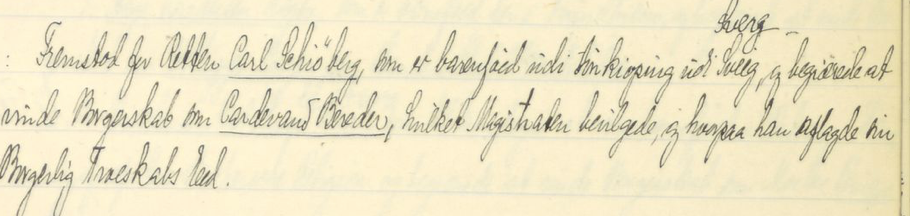 Sverg
: Fremstod for Retten Carl Schiöberg, som er barnføed udi Jönkiöping udi Sveeg, og begiærede at
vinde Borgerskab som Cardevand Bereder, hvilket Magistraten bevilgede, og hvorpaa han aflagde sin
Borgerlig Troeskabs Eed.